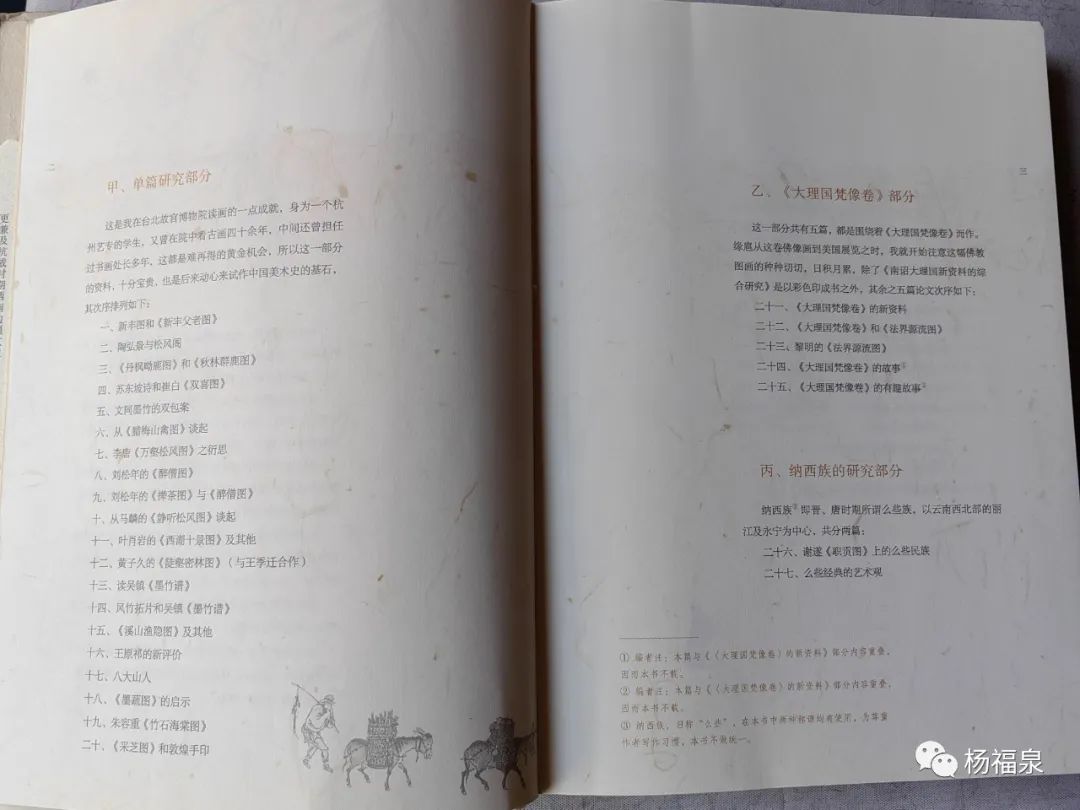 二
甲、单篇研究部分
这是我在台北故宫博物院读画的一点成就，身为一个杭
州艺专的学生，又曾在院中看古画四十余年，中间还曾担任
过书画处长多年，这都是难再得的黄金机会，所以这一部分
的资料，十分宝贵，也是后来动心来试作中国美术史的基石，
其次序排列如下：
一、新丰图和《新丰父老图》
二、陶弘景与松风阁
三、《丹枫呦鹿图》和《秋林群鹿图》
四、苏东坡诗和崔白《双喜图》
五、文同墨竹的双包案
六、从《腊梅山禽图》谈起
七、李唐《万壑松风图》之衍思
八、刘松年的《醉僧图》
九、刘松年的《撵茶图》与《醉僧图》
十、从马麟的《静听松风图》谈起
十一、叶肖岩的《西湖十景图》及其他
十二、黄子久的《陡壑密林图》（与王季迁合作）
十三、读吴镇《墨竹谱》
十四、风竹拓片和吴镇《墨竹谱》
十五、《溪山渔隐图》及其他
十六、王原祁的新评价
十七、八大山人
十八、《墨蔬图》的启示
十九、朱容重《竹石海棠图》
二十、《采芝图》和敦煌手印
三
乙、《大理国梵像卷》部分
这一部分共有五篇，都是围绕着《大理国梵像卷》而作。
缘扈从这卷佛像画到美国展览之时，我就开始注意这幅佛教
图画的种种切切，日积月累，除了《南诏大理国新资料的综
合研究》是以彩色印成书之外，其余之五篇论文次序如下：
二十一、《大理国梵像卷》的新资料
二十二、《大理国梵像卷》和《法界源流图》
二十三、黎明的《法界源流图》
二十四、《大理国梵像卷》的故事①
二十五、《大理国梵像卷》的有趣故事②
丙、纳西族的研究部分
纳西族③即晋、唐时期所谓么些族，以云南西北部的丽
江及永宁为中心，共分两篇：
二十六、谢遂《职贡图》上的么些民族
二十七、么些经典的艺术观
① 编者注：本篇与《〈大理国梵像卷〉的新资料》部分内容重叠，
因而本书不载。
② 编者注：本篇与《〈大理国梵像卷〉的新资料》部分内容重叠，
因而本书不载。
③ 纳西族，旧称“么些”，在本书中两种称谓均有使用，为尊重
作者写作习惯，本书不做统一。
杨福泉